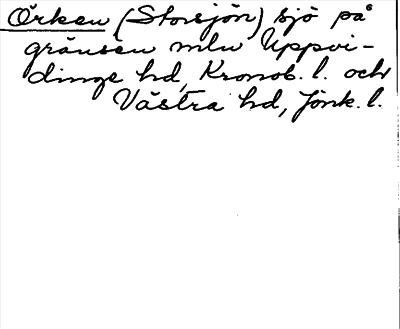 Örken (Storsjön) sjö på
gränsen mlu Uppvi-
dinge hd, Kronob. l. och
Västra hd, Jönk. l.